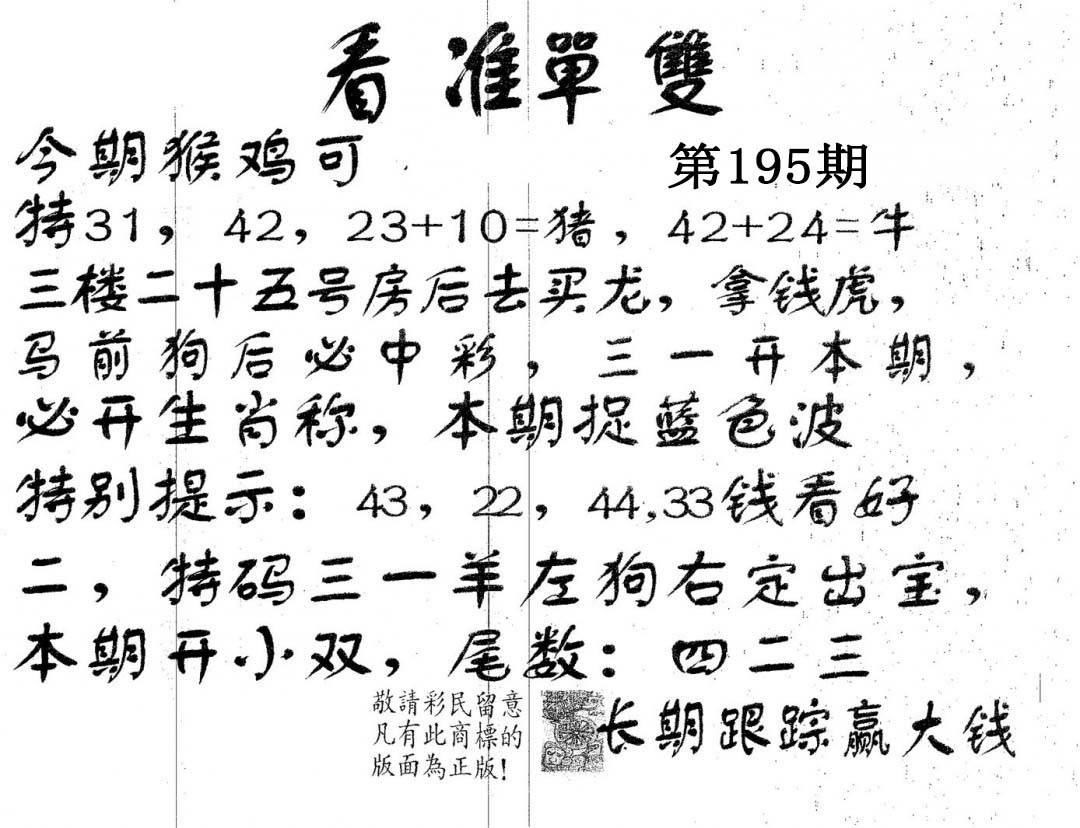 看准單雙
今期猴鸡可
第195期
特31，42，23+10=猪，42+24=牛
三楼二十五号房后去买龙，拿钱虎，
马前狗后必中彩，三一开本期，
必开生肖称，本期捉蓝色波
特别提示：43，22，44,33钱看好
二，特码三一羊左狗右定出宝，
本期开小双，尾数：四二三
敬請彩民留意
凡有此商標的
版面為正版！
长期跟踪赢大钱